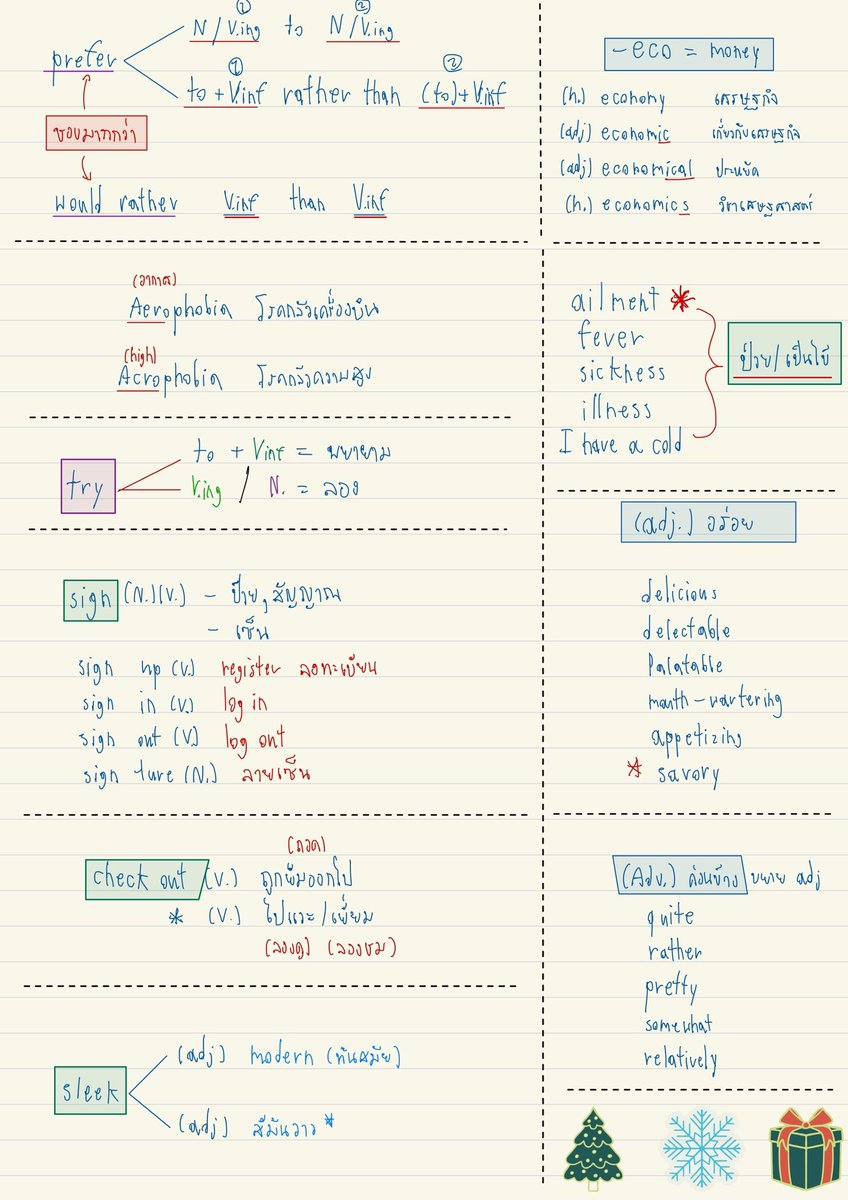 ① ②
N/V.ing to N/V.ing
prefer
① ②
to + V.inf rather than (to)+V.inf
ชอบมากกว่า
would rather V.inf than V.inf
(อากาศ)
Aerophobia โรคกลัวเครื่องบิน
(high)
Acrophobia โรคกลัวความสูง
to + V.inf = พยายาม
try
V.ing / N. = ลอง
sign (N.)(V.) - ป้าย, สัญญาณ
- เซ็น
sign up (V.) register ลงทะเบียน
sign in (V.) log in
sign out (V.) log out
sign ture (N.) ลายเซ็น
(ถอด)
check out (V.) ถูกยืมออกไป
* (V.) ไปแวะ/เยี่ยม
(ลองดู) (ลองชม)
(adj) modern (ทันสมัย)
sleek
(adj) สีมันวาว *
-eco = money
(n.) economy เศรษฐกิจ
(adj) economic เกี่ยวกับเศรษฐกิจ
(adj) economical ประหยัด
(n.) economics วิชาเศรษฐศาสตร์
ailment *
fever
sickness
illness
I have a cold
ป่วย/เป็นไข้
(adj.) อร่อย
delicious
delectable
Palatable
mouth-wartering
appetizing
* savory
(Adv.) ค่อนข้าง ขยาย adj
quite
rather
pretty
somewhat
relatively